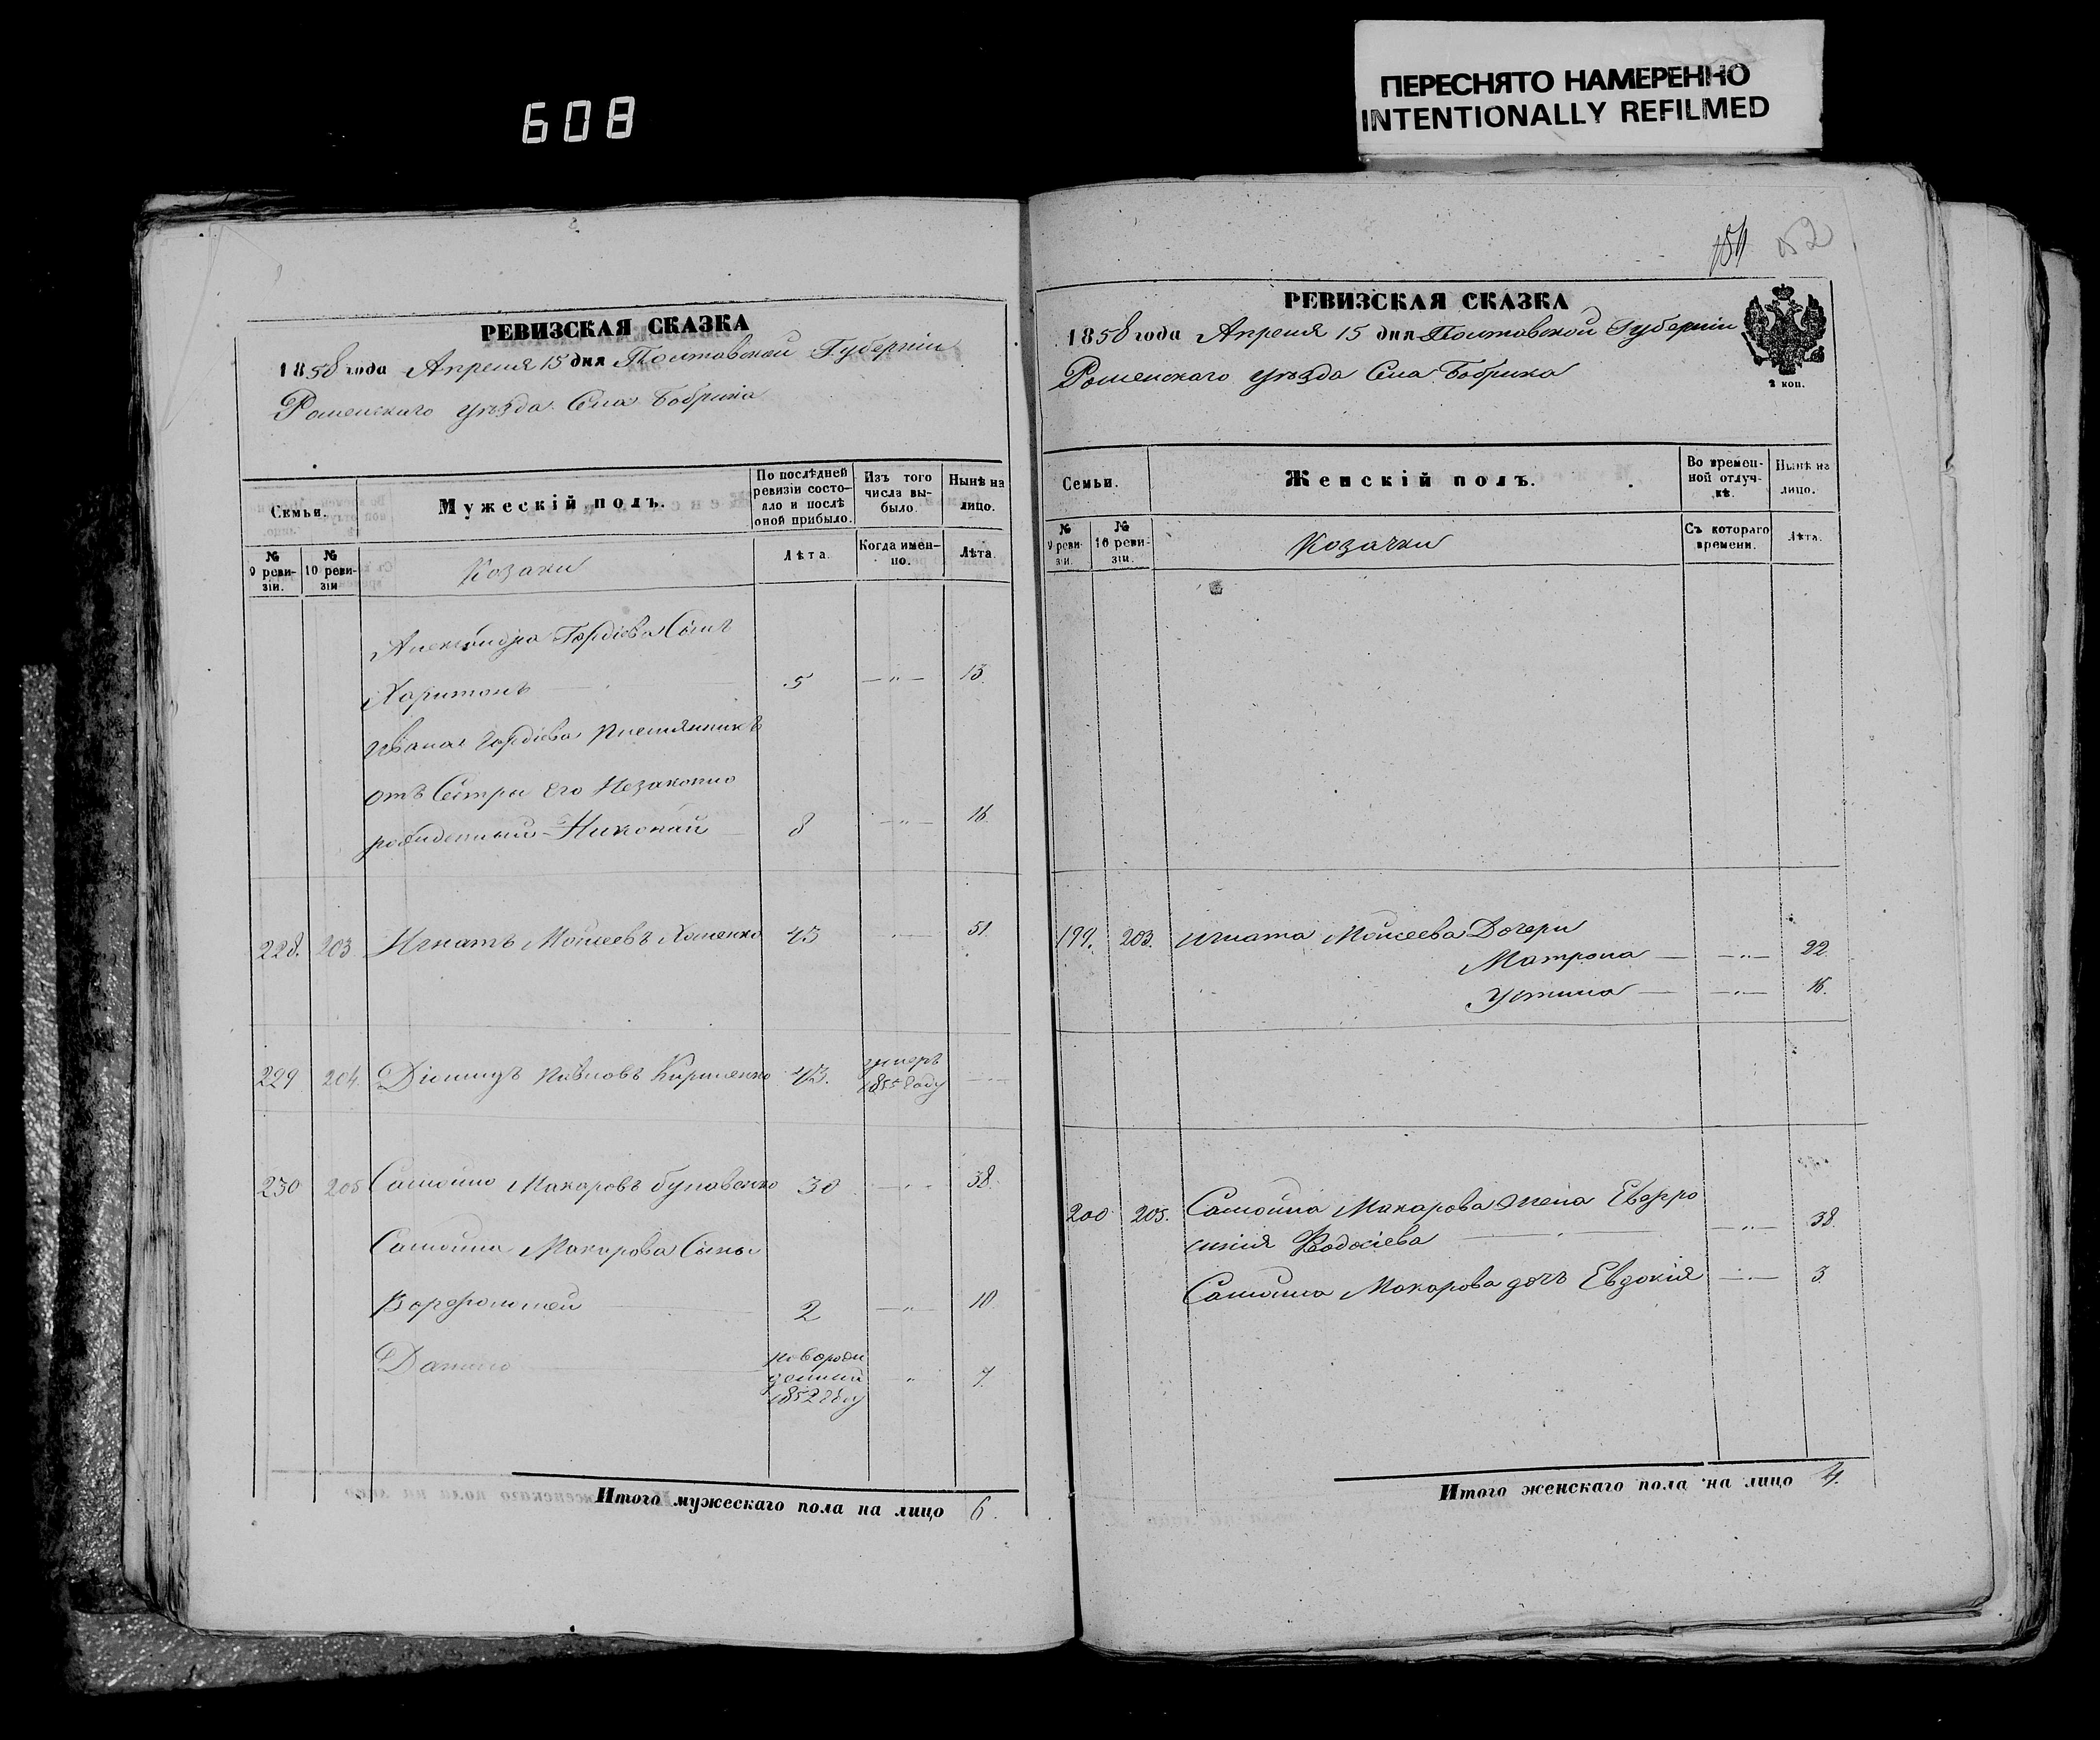 608
ПЕРЕСНЯТО НАМЕРЕННО
INTENTIONALLY REFILMED
РЕВИЗСКАЯ СКАЗКА
1858 года Апреля 15 дня Полтавской Губерніи
Роменскаго уѣзда Села Бобрика
Семьи.
Мужескій полъ.
По послѣдней ревизіи состояло и послѣ оной прибыло.
Изъ того числа выбыло.
Нынѣ на лицо.
№ 9 ревизіи.
№ 10 ревизіи
Козаки
Лѣта.
Когда именно.
Лѣта.
Александра Гордіева Сынъ
Харитонъ 5 — „ — 13.
Ивана Гордіева племянникъ
отъ Сестры его Незаконно
рожденный Николай 8 — „ — 16
228. 203 Игнатъ Моисеевъ Хоменко 43 — „ — 51
229 204. Діомидъ Кириленко 43. умеръ 1855 году
230 205 Самойло Макаровъ 30 — „ — 38.
Самойла Макарова Сыны
Варфоломей 2 — „ — 10
Данило новорожденный 1852 году „ 7.
Итого мужескаго пола на лицо 6.
151
РЕВИЗСКАЯ СКАЗКА
1858 года Апреля 15 дня Полтавской Губерніи
Роменскаго уѣзда Села Бобрика
2 коп.
Семьи.
Женскій полъ.
Во временной отлучкѣ.
Нынѣ на лицо.
№ 9 ревизіи.
№ 10 ревизіи.
Козачки
Съ котораго времени.
Лѣта.
199. 203. Игната Моисеева Дочери
Матрона — — „ — 22.
Устина — — „ — 16.
200 205. Самойла Макарова жена Евфро
синія Федосіева — „ — 38.
Самойла Макарова дочь Евдокія — „ — 3
Итого женскаго пола на лицо 4.